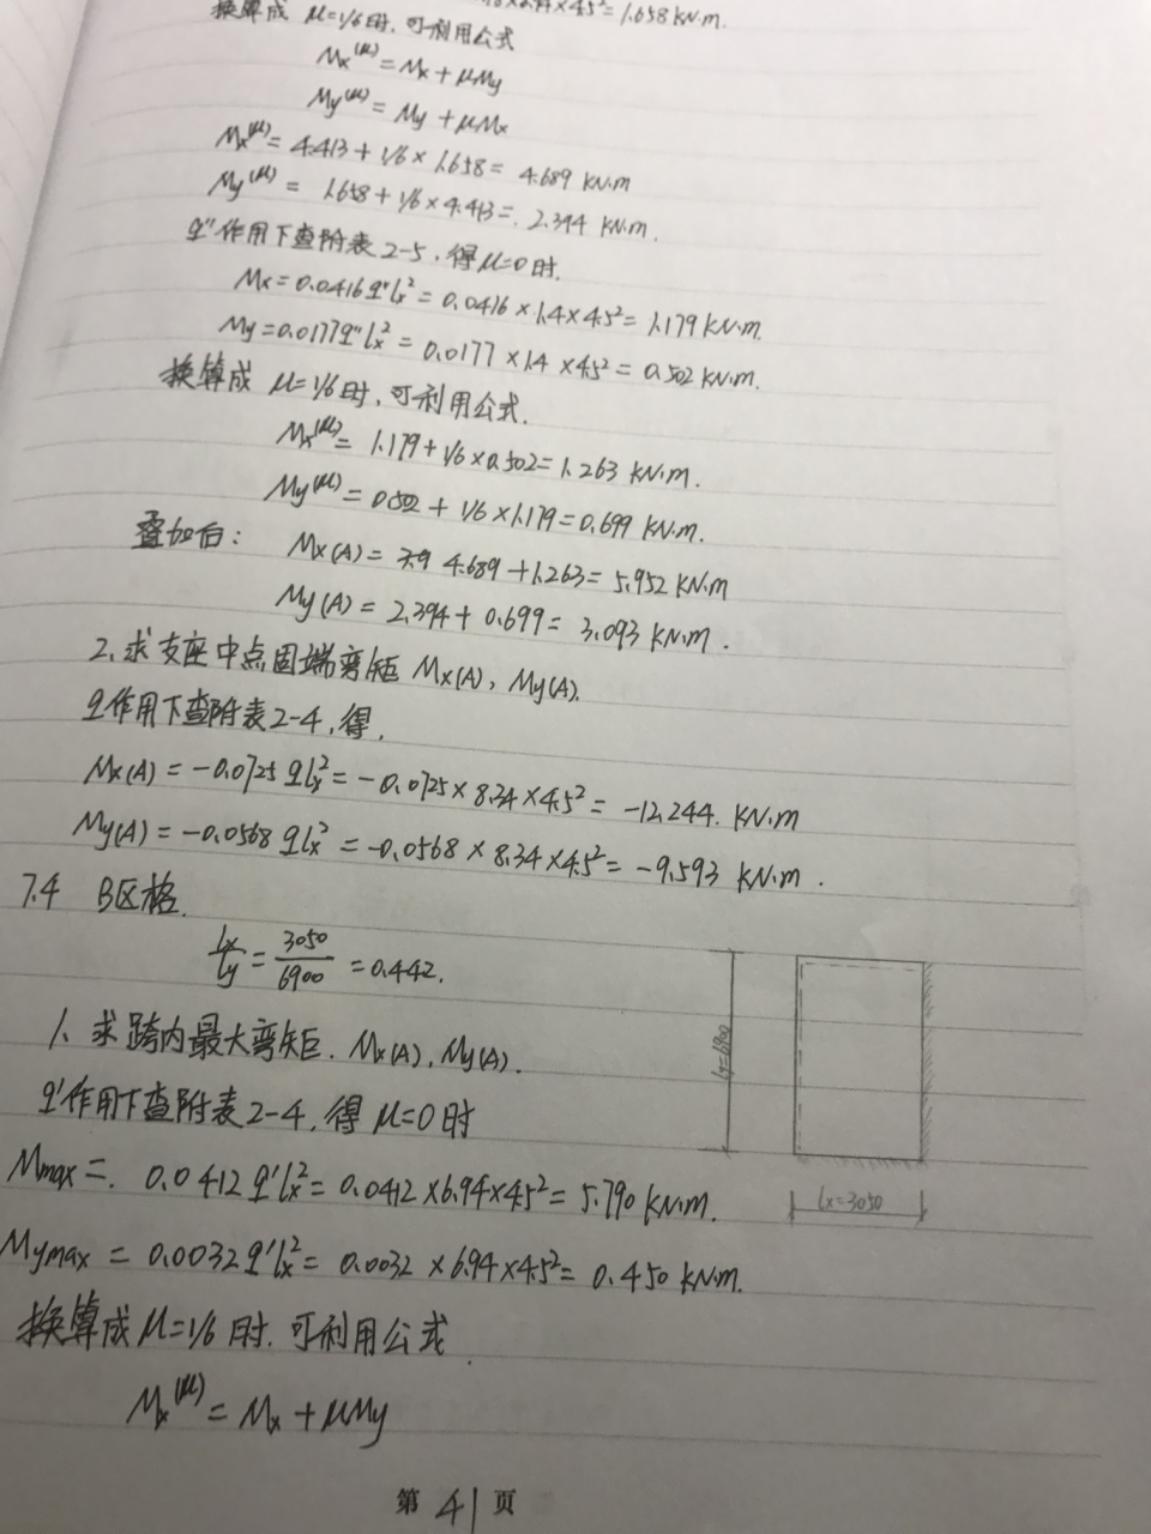 ×4.5²=1.658 kN·m.
换算成 μ=1/6时,可利用公式
Mx⁽ᵘ⁾=Mx+μMy
My⁽ᵘ⁾=My+μMx
Mx⁽ᵘ⁾=4.413+1/6×1.658=4.689 kN·m
My⁽ᵘ⁾=1.658+1/6×4.413=2.394 kN·m.
q"作用下查附表2-5,得μ=0时.
Mx=0.0416q"lx²=0.0416×1.4×4.5²=1.179kN·m.
My=0.0177q"lx²=0.0177×1.4×4.5²=0.502kN·m.
换算成 μ=1/6时,可利用公式.
Mx⁽ᵘ⁾=1.179+1/6×0.502=1.263 kN·m.
My⁽ᵘ⁾=0.502+1/6×1.179=0.699 kN·m.
叠加后: Mx(A)=4.689+1.263=5.952 kN·m
My(A)=2.394+0.699=3.093 kN·m.
2.求支座中点固端弯矩 Mx(A),My(A).
q作用下查附表2-4,得,
Mx(A)=-0.0725qlx²=-0.0725×8.34×4.5²=-12.244. kN·m
My(A)=-0.0568qlx²=-0.0568×8.34×4.5²=-9.593 kN·m.
7.4 B区格.
lx/ly=3050/6900=0.442.
1、求跨内最大弯矩.Mx(A),My(A).
q'作用下查附表2-4,得μ=0时
Mmax=.0.0412q'lx²=0.0412×6.94×4.5²=5.790kN·m.
Mymax=0.0032q'lx²=0.0032×6.94×4.5²=0.450kN·m.
换算成μ=1/6时.可利用公式.
Mx⁽ᵘ⁾=Mx+μMy
ly=6900
lx=3050
第 41 页